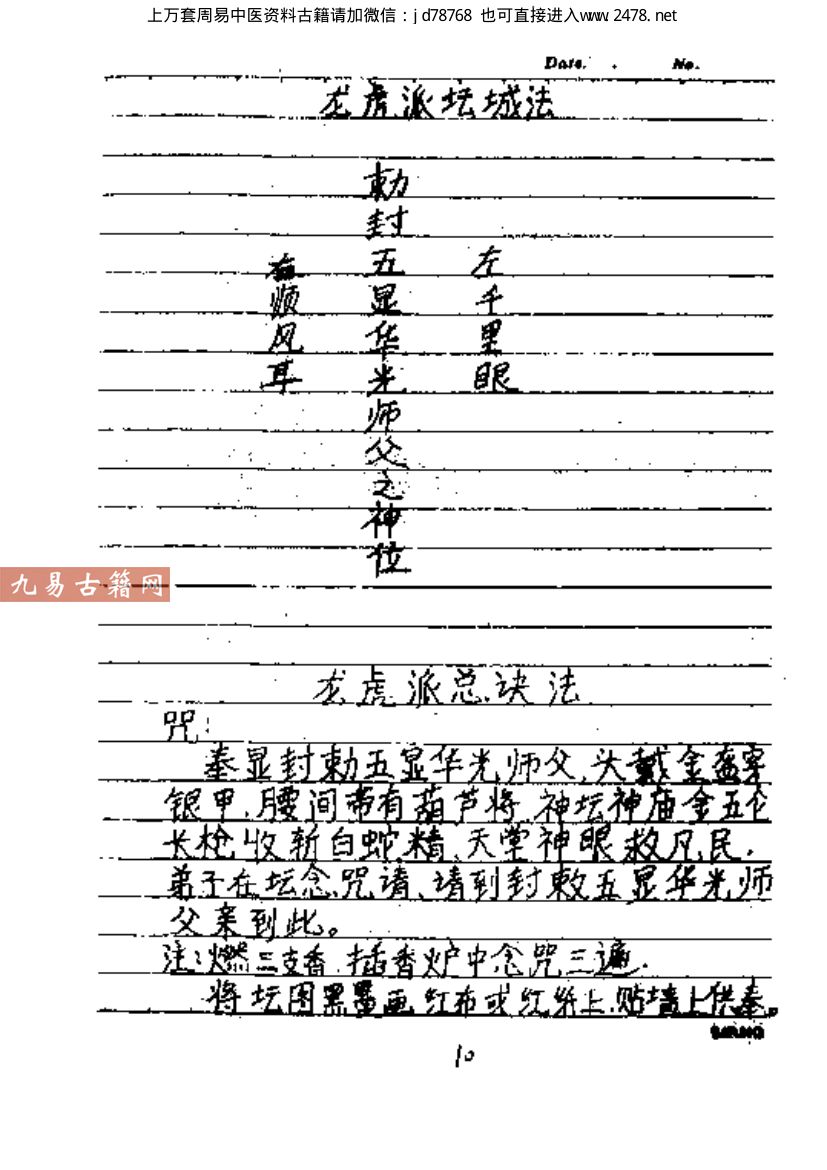 上万套周易中医资料古籍请加微信：jd78768 也可直接进入www.2478.net
Date. . No.
龙虎派坛城法
勅封五显华光师父之神位
左千里眼
右顺风耳
九易古籍网
龙虎派总诀法
咒:
奉显封勅五显华光师父,头戴金盔穿
银甲、腰间带有葫芦将,神坛神庙金五仑
长枪收斩白蛇精、天堂神眼救凡民.
弟子在坛念咒请、请到封敕五显华光师
父亲到此。
注:燃三支香,插香炉中念咒三遍.
将坛图黑墨画红布或红纸上,贴墙上供奉。
10